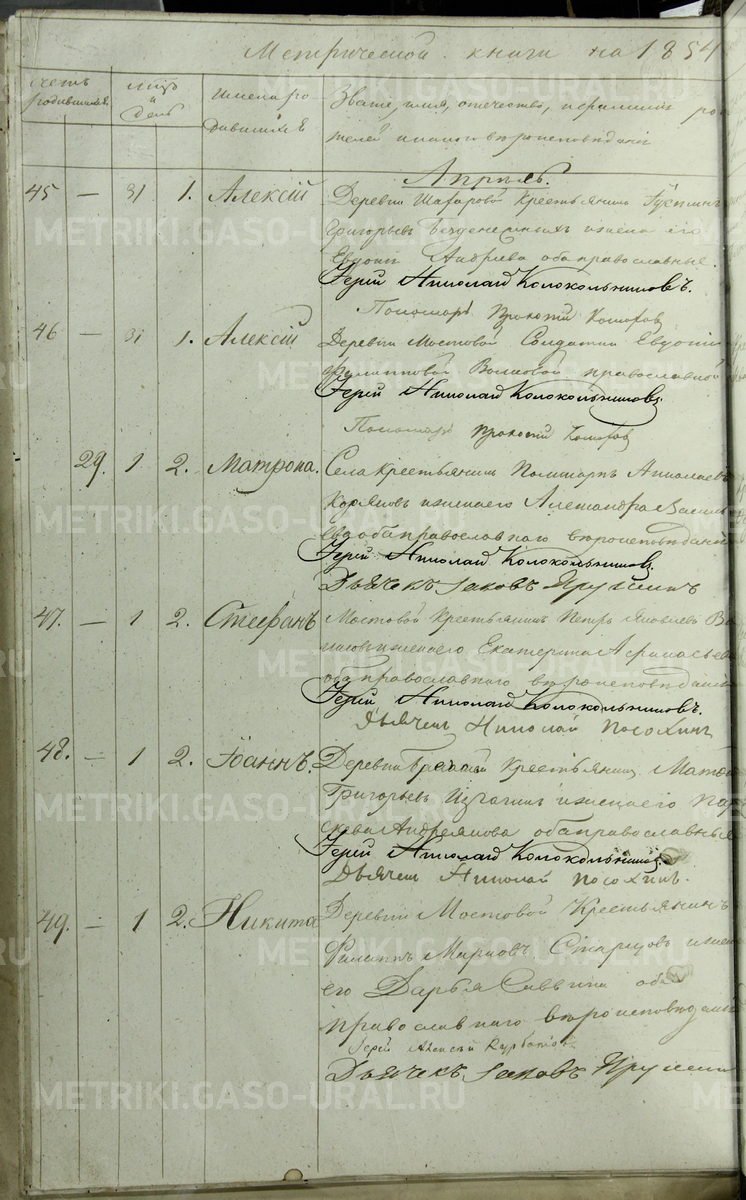 Метрической книги на 1854
счетъ родившихся.
мцъ и день
имена родившихъ
Званіе, имя, отечество, и фамилія ро
телей и какого вѣроисповѣданія
Апрѣль.
45 — 31 1. Алексій Деревни Шафаровой Крестьянинъ
Григорьевъ и жена его
Евдокія Андреева оба православные.
Іерей Николай Колокольниковъ.
Пономарь Прокопій Комаровъ
46 — 31 1. Алексій Деревни Мостовой Солдатки Евдокіи
Филипповой Волковой православной
Іерей Николай Колокольниковъ.
Пономарь Прокопій Комаровъ
29. 1 2. Матрона. Села Крестьянинъ Николаевъ
и жена его Александра Василь
ева оба православнаго вѣроисповѣданія
Іерей Николай Колокольниковъ.
Дьячекъ Іаковъ
47. — 1 2. Стефанъ Мостовой Крестьянинъ Петръ Яковлевъ
и жена его Екатерина Афанасьева
оба православнаго вѣроисповѣданія
Іерей Николай Колокольниковъ.
Дьячекъ Николай Посохинъ
48. — 1 2. Іоаннъ. Деревни Крестьянинъ
Григорьевъ и жена его Пара
скева Андреянова оба православные
Іерей Николай Колокольниковъ.
Дьячекъ Николай Посохинъ.
49. — 1 2. Никита Деревни Мостовой Крестьянинъ
Филиппъ Марковъ Старцовъ и жена
его Дарья Саввина оба
православнаго вѣроисповѣданія
Іерей Алексѣй Курбатовъ
Дьячекъ Іаковъ
METRIKI.GASO-URAL.RU